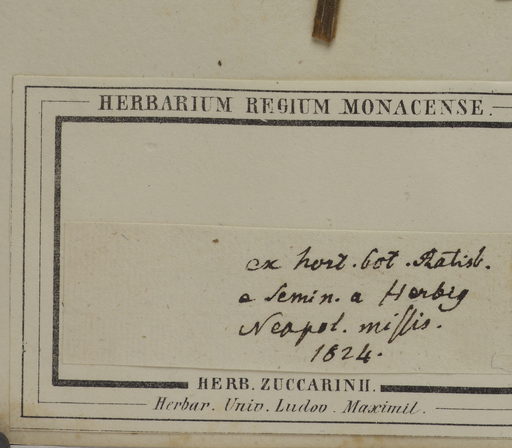 HERBARIUM REGIUM MONACENSE.
ex hort. bot. Ratisb.
e semin. a Herbig
Neapol. missis.
1824.
HERB. ZUCCARINII.
Herbar. Univ. Ludov. Maximil.